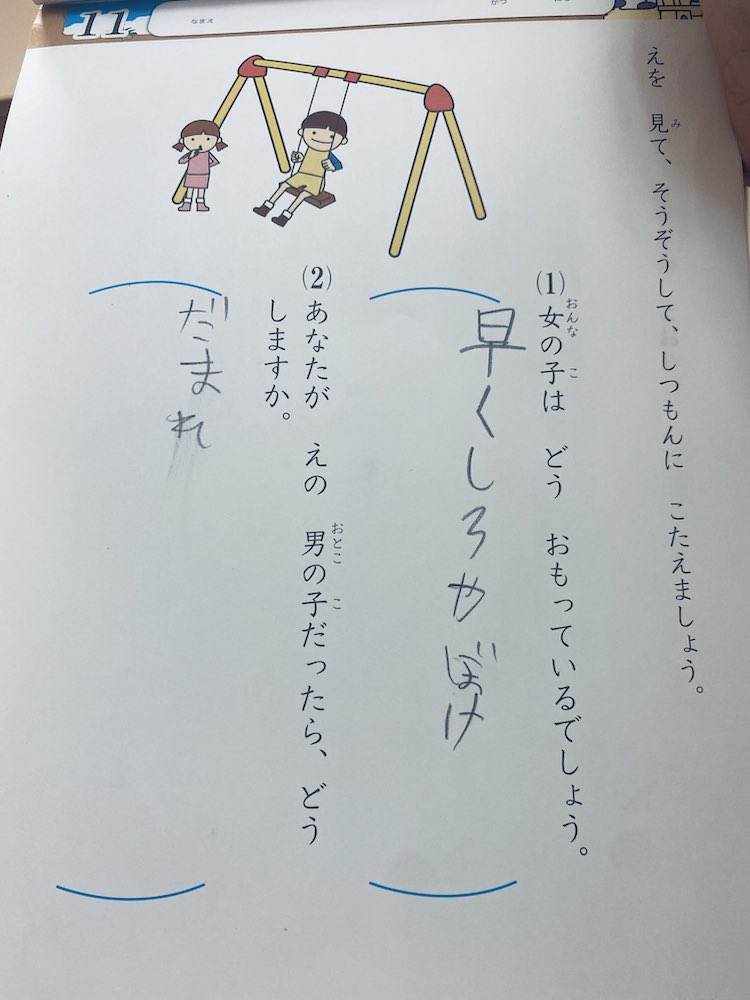 11
なまえ
がつ
えを 見て、そうぞうして、しつもんに こたえましょう。
み
(1)女の子は どう おもっているでしょう。
おんな こ
早くしろやぼけ
(2)あなたが えの 男の子だったら、どう
おとこ こ
しますか。
だまれ